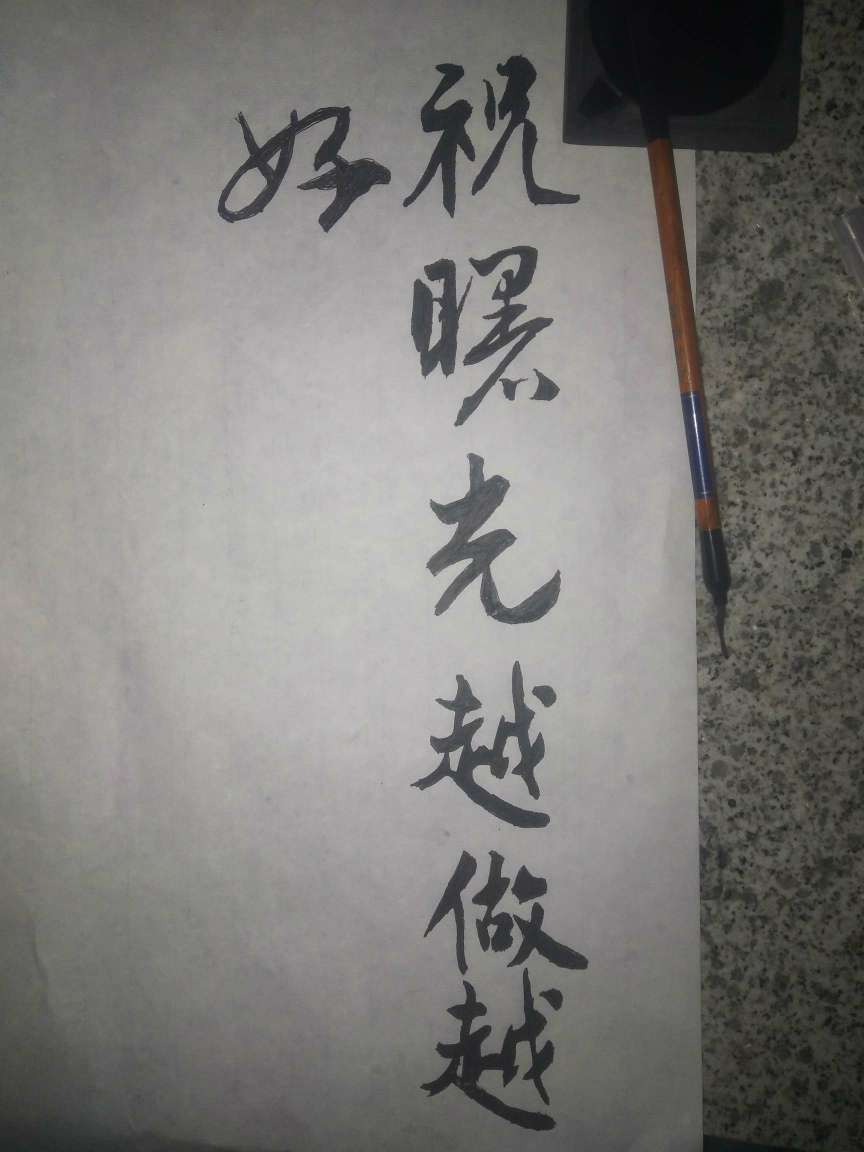 祝曙光越做越
好